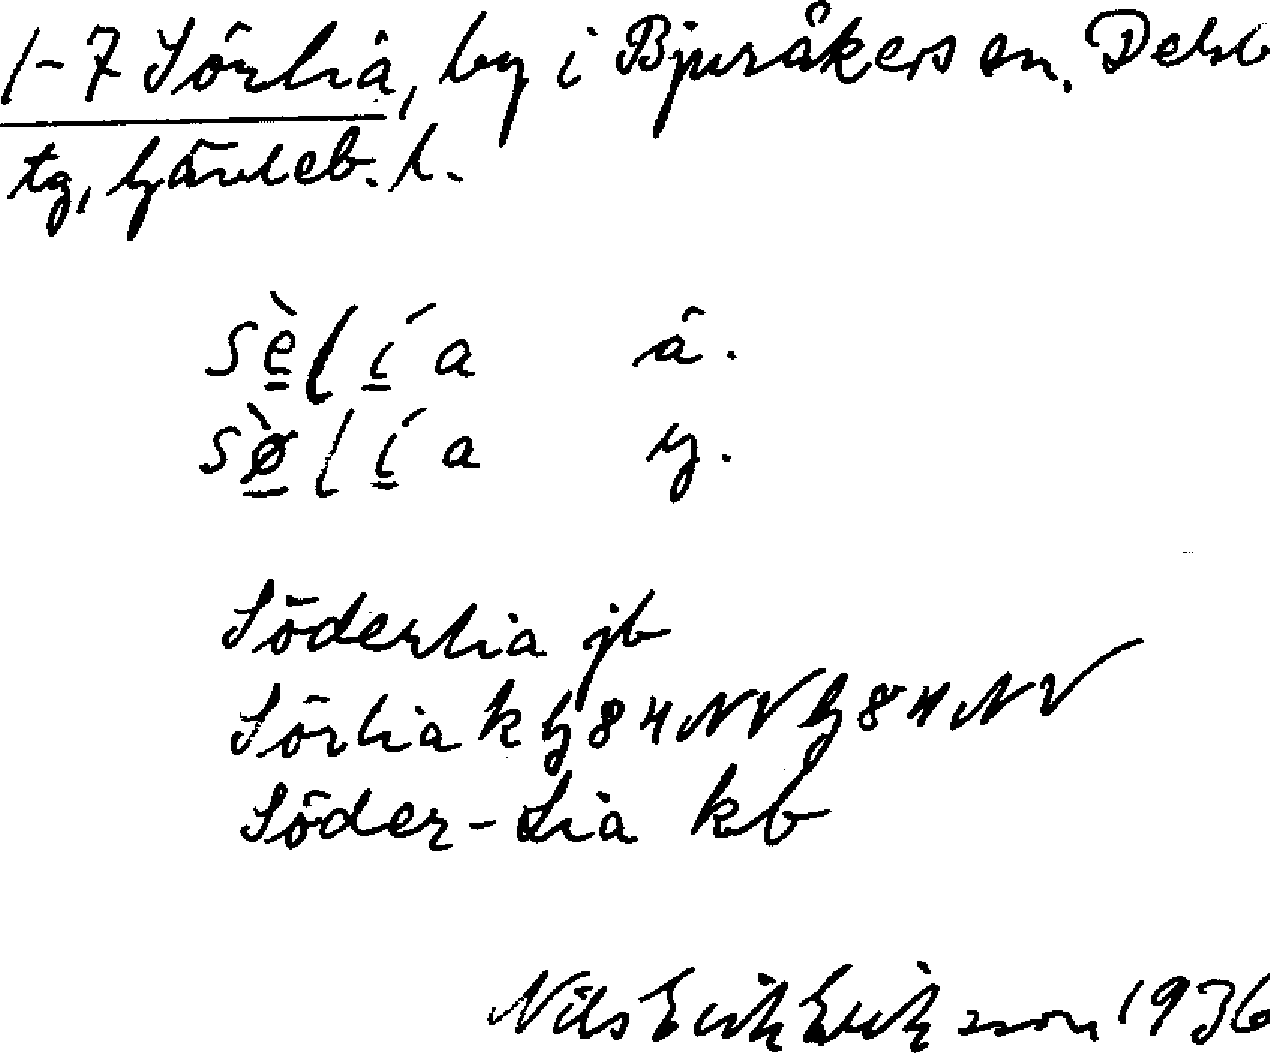 1-7 Sörlia, by i Bjuråkers sn. Delsb
tg, Gävleb. l.
sè̱l í̱a ä.
sø̱̀l í̱a y.
Söderlia jb
Sörlia k G 84 NV G 84 NV
Söder-Lia kb
Nils Erik Eriksson 1936